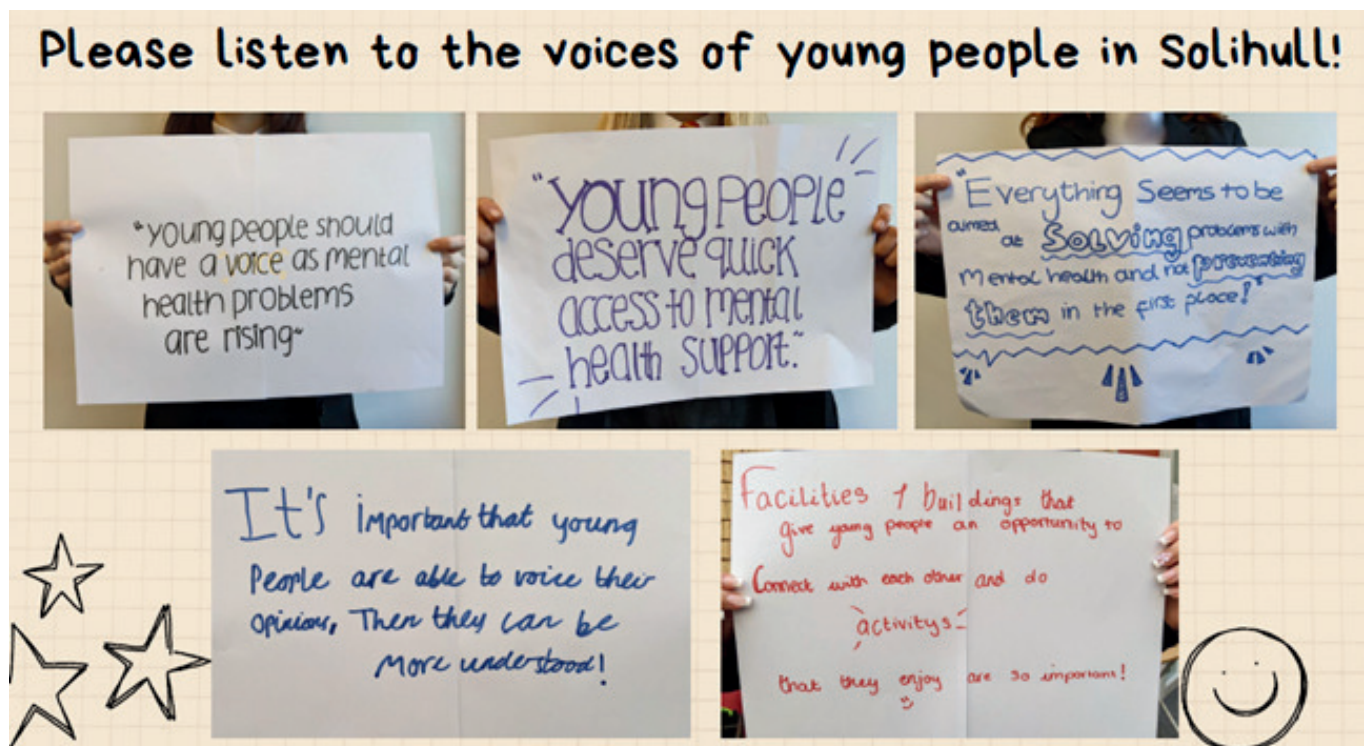 Please listen to the voices of young people in Solihull!
"young people should
have a voice as mental
health problems
are rising"
"Young People
deserve quick
access to mental
health support."
"Everything Seems to be
aimed at Solving problems with
Mental health and not preventing
them in the first place!"
It's important that young
People are able to voice their
opinions, Then they can be
More understood!
Facilities / buildings that
give young people an opportunity to
Connect with each other and do
activitys
that they enjoy are so important!